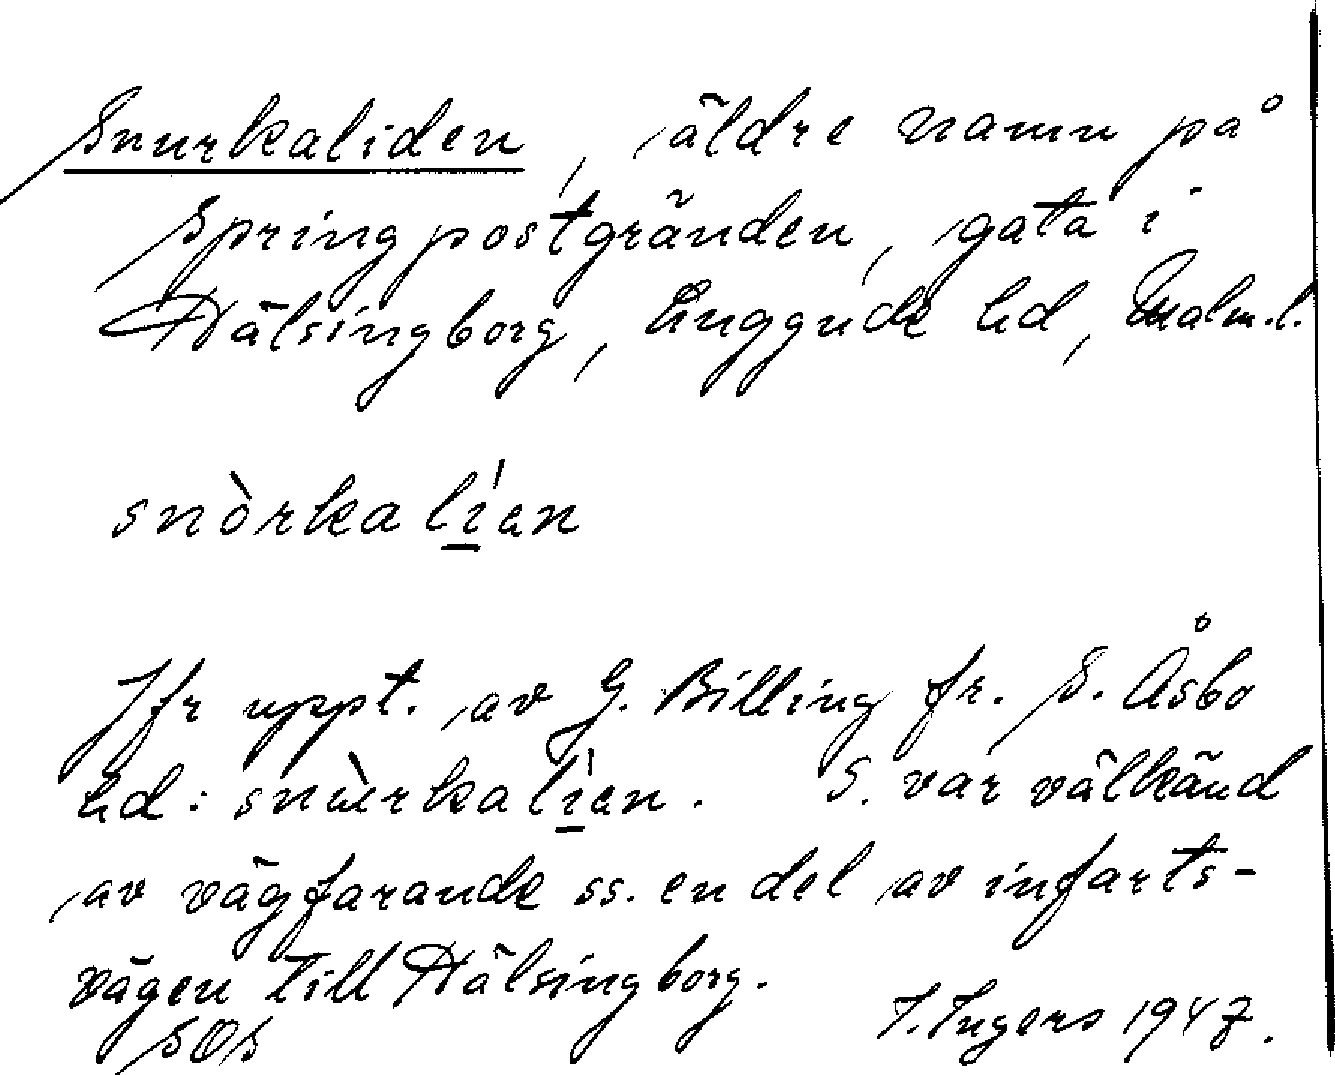 Snurkaliden, äldre namn på
Springpostgränden, gata i
Hälsingborg, Luggude hd, Malm.l.
snòrkalían
Jfr uppt. av G. Billing fr. S. Åsbo
hd: snùrkalían. S. var välkänd
av vägfarande ss. en del av infarts-
vägen till Hälsingborg.
I. Ingers 1947.
SOS